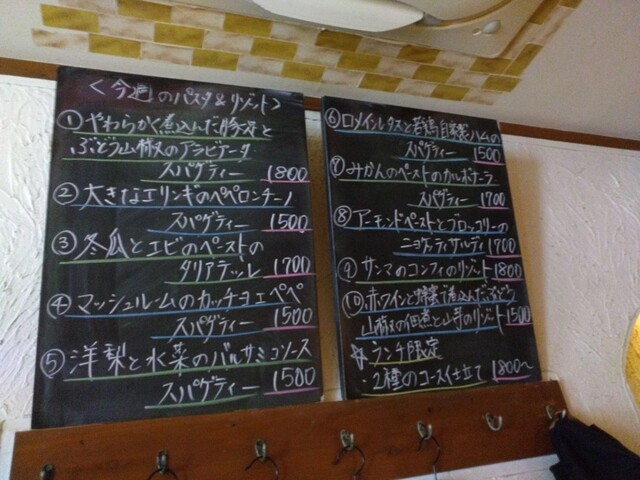 ＜今週のパスタ&リゾット＞
①やわらかく煮込んだ豚スネと
ぶどう山椒のアラビアータ
スパゲティー 1800
②大きなエリンギのペペロンチーノ
スパゲティー 1500
③冬瓜とエビのペーストの
タリアテッレ 1700
④マッシュルームのカッチョエペペ
スパゲティー 1500
⑤洋梨と水菜のバルサミコソース
スパゲティー 1500
⑥ロメインレタスと若鶏自家製ハムの
スパゲティー 1500
⑦みかんのペーストのカルボナーラ
スパゲティー 1700
⑧アーモンドペーストとブロッコリーの
ニョケッティサルディ 1700
⑨サンマのコンフィのリゾット 1800
⑩赤ワインと蜂蜜で煮込んだぶどう
山椒の佃煮と山芋のリゾット 1500
☆ランチ限定
・2種のコース仕立て 1800〜